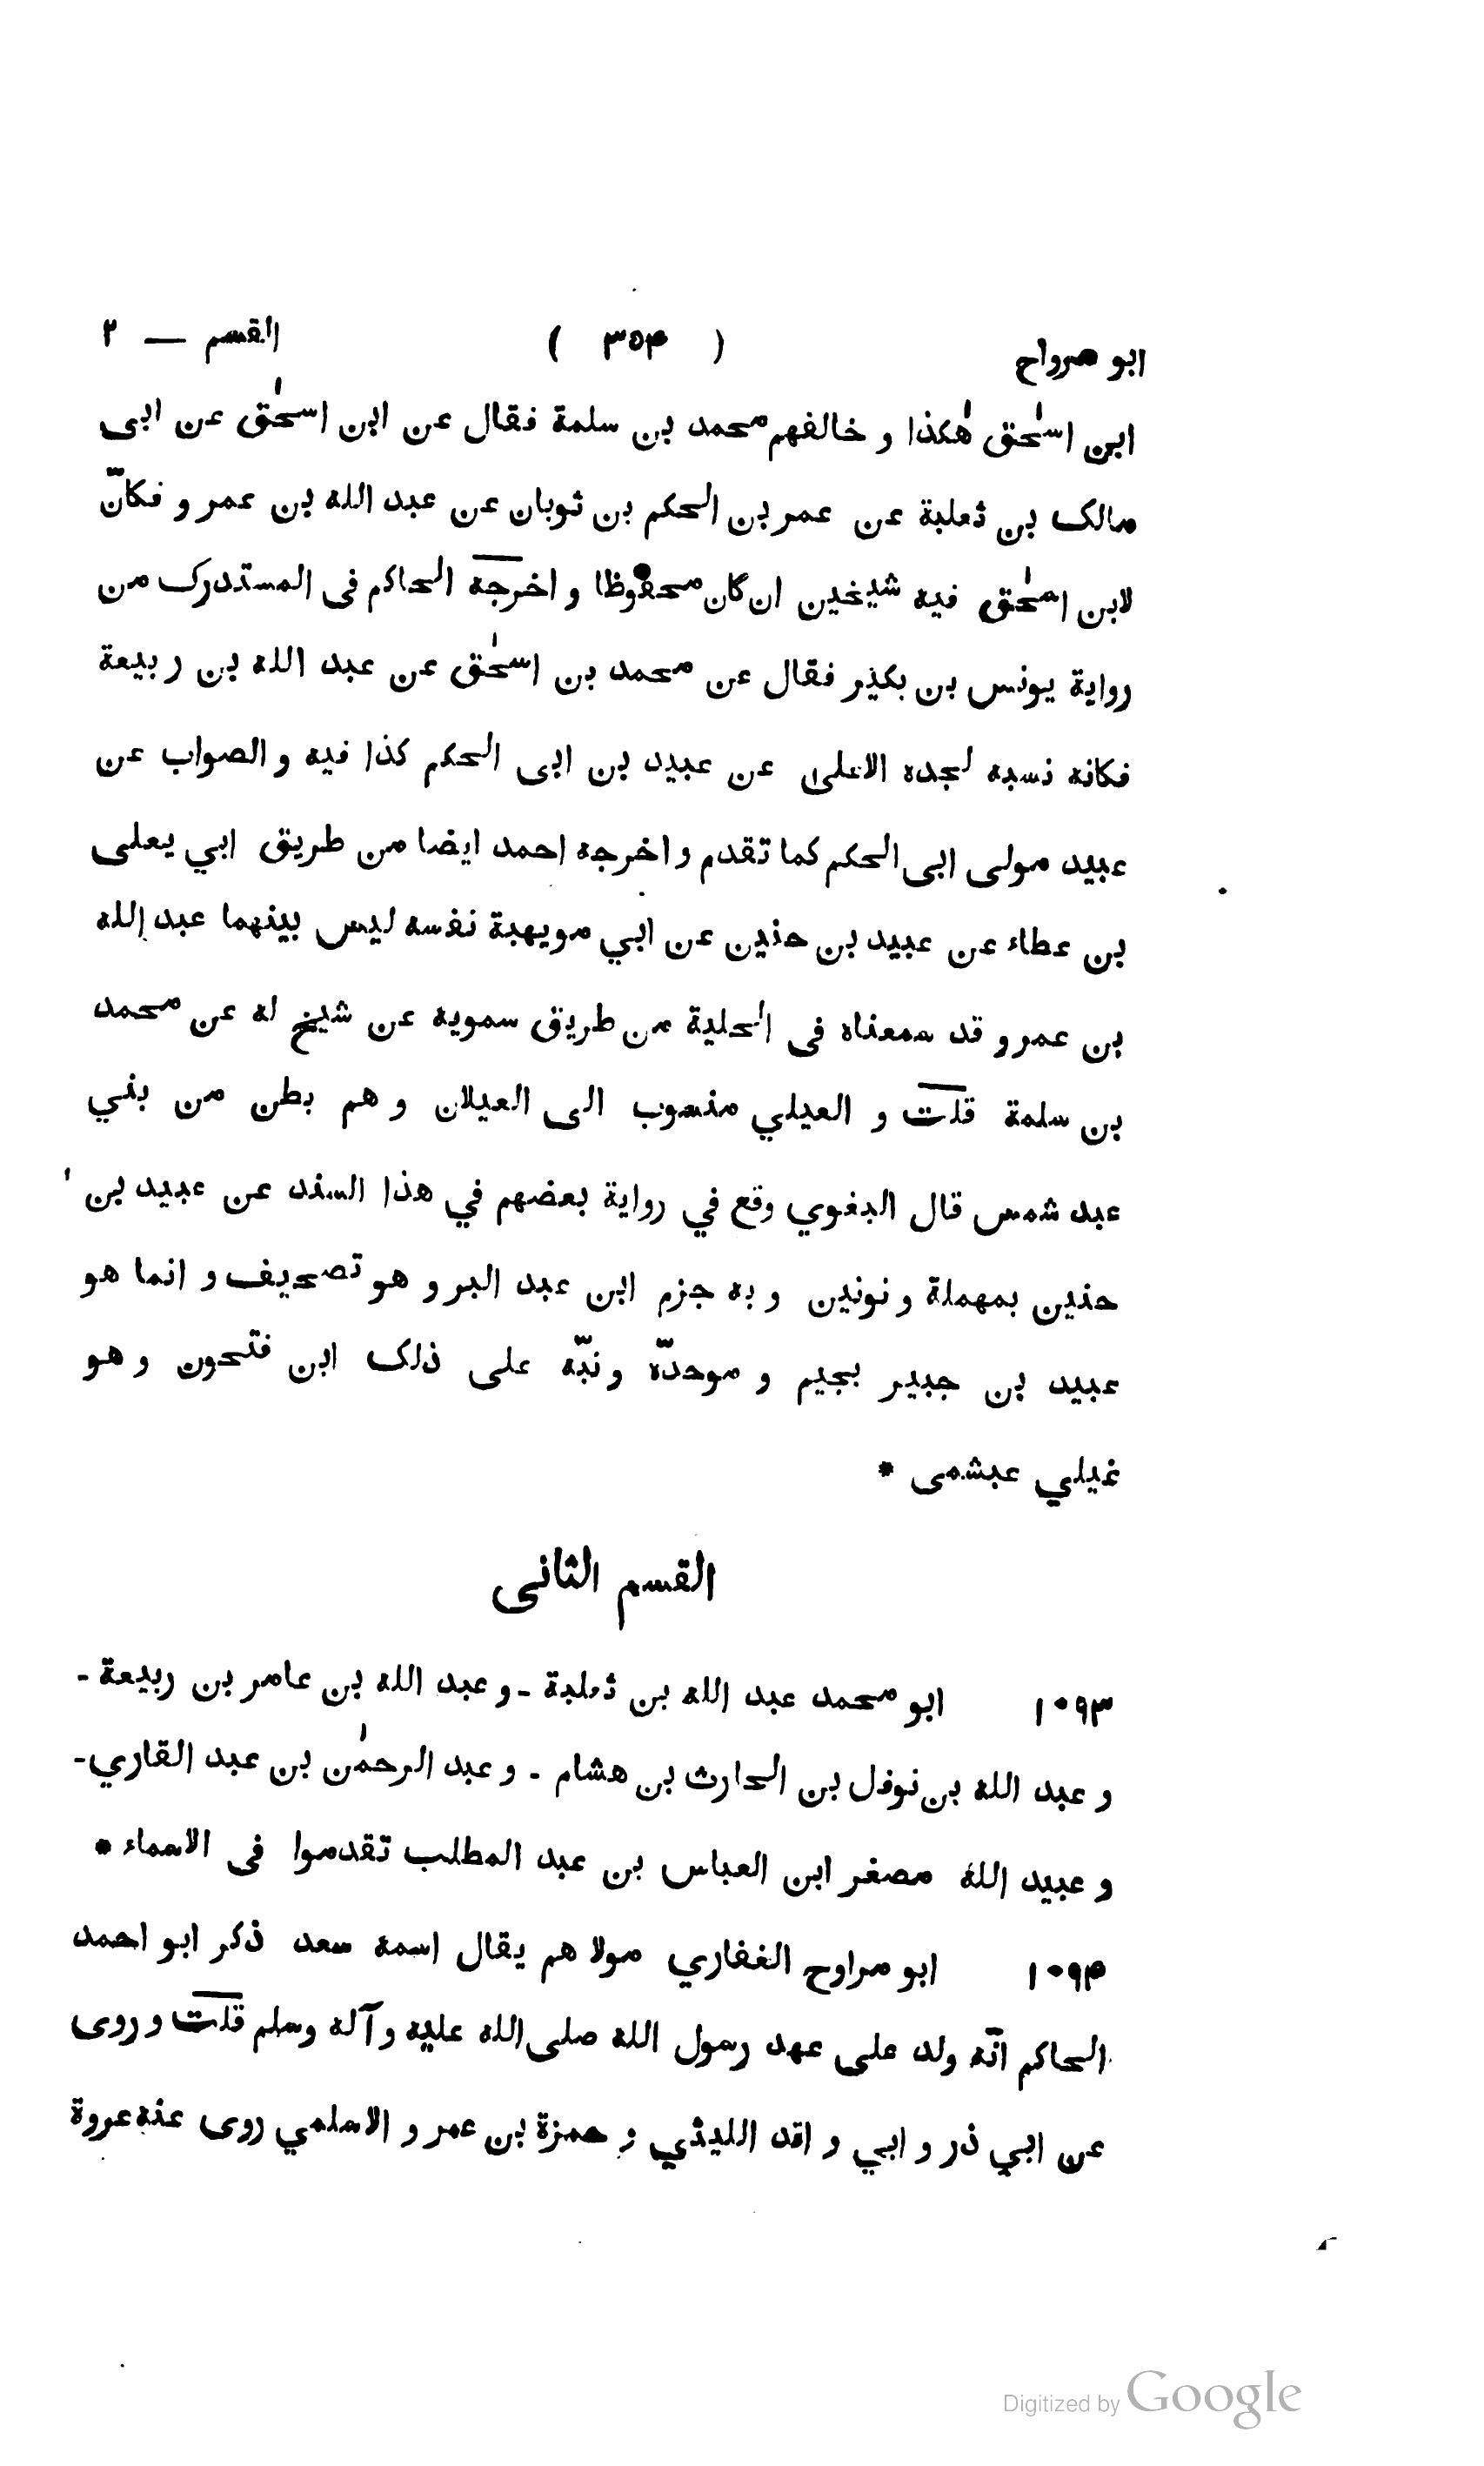 ابو مرواح ( ۳۵۴ ) القسم — ۲
ابن اسحٰق هٰكذا و خالفهم محمد بن سلمة فقال عن ابن اسحٰق عن ابى
مالك بن ثعلبة عن عمر بن الحكم بن ثوبان عن عبد الله بن عمر و فكانّ
لابن اسحٰق فيه شيخين ان كان محفوظا و اخرجه الحاكم فى المستدرك من
رواية يونس بن بكير فقال عن محمد بن اسحٰق عن عبد الله بن ربيعة
فكانه نسبه لجده الاعلى عن عبيد بن ابى الحكم كذا فيه و الصواب عن
عبيد مولى ابى الحكم كما تقدم و اخرجه احمد ايضا من طريق ابي يعلى
بن عطاء عن عبيد بن حنين عن ابي مويهبة نفسه ليس بينهما عبد الله
بن عمرو قد سمعناه فى الحلية من طريق سمويه عن شيخ له عن محمد
بن سلمة قلت و العيلي منسوب الى العيلان و هم بطن من بني
عبد شمس قال البغوي وقع في رواية بعضهم في هذا السند عن عبيد بن
حنين بمهملة و نونين و به جزم ابن عبد البر و هو تصحيف و انما هو
عبيد بن جبير بجيم و موحدّة و نبّه على ذلك ابن فتحون و هو
غيلي عبشمى *
القسم الثانى
۱۰۹۳ ابو محمد عبد الله بن ثعلبة - و عبد الله بن عامر بن ربيعة -
و عبد الله بن نوفل بن الحارث بن هشام - و عبد الرحمٰن بن عبد القاري -
و عبيد الله مصغر ابن العباس بن عبد المطلب تقدموا فى الاسماء *
۱۰۹۴ ابو مراوح الغفاري مولا هم يقال اسمه سعد ذكر ابو احمد
الحاكم انّه ولد على عهد رسول الله صلى الله عليه و آله وسلم قلت و روى
عن ابي ذر و ابي و اقد الليثي و حمزة بن عمر و الاسلمي روى عنه عروة
Digitized by Google